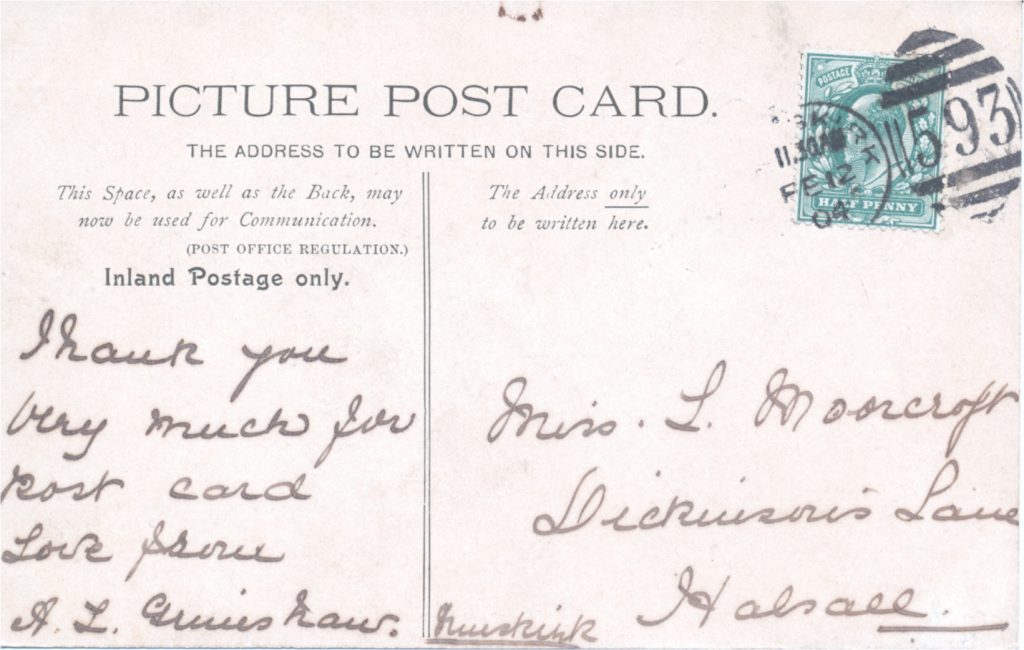 PICTURE POST CARD.
THE ADDRESS TO BE WRITTEN ON THIS SIDE.
This Space, as well as the Back, may
now be used for Communication.
(POST OFFICE REGULATION.)
Inland Postage only.
Thank you
Very much for
Post card
Love from
A. L. Grimshaw.
The Address only
to be written here.
POSTAGE
HALF PENNY
SKIRK
11.30AM
FE 12
04
593
Miss. L. Moorcroft
Dickinson's Lane
Halsall.